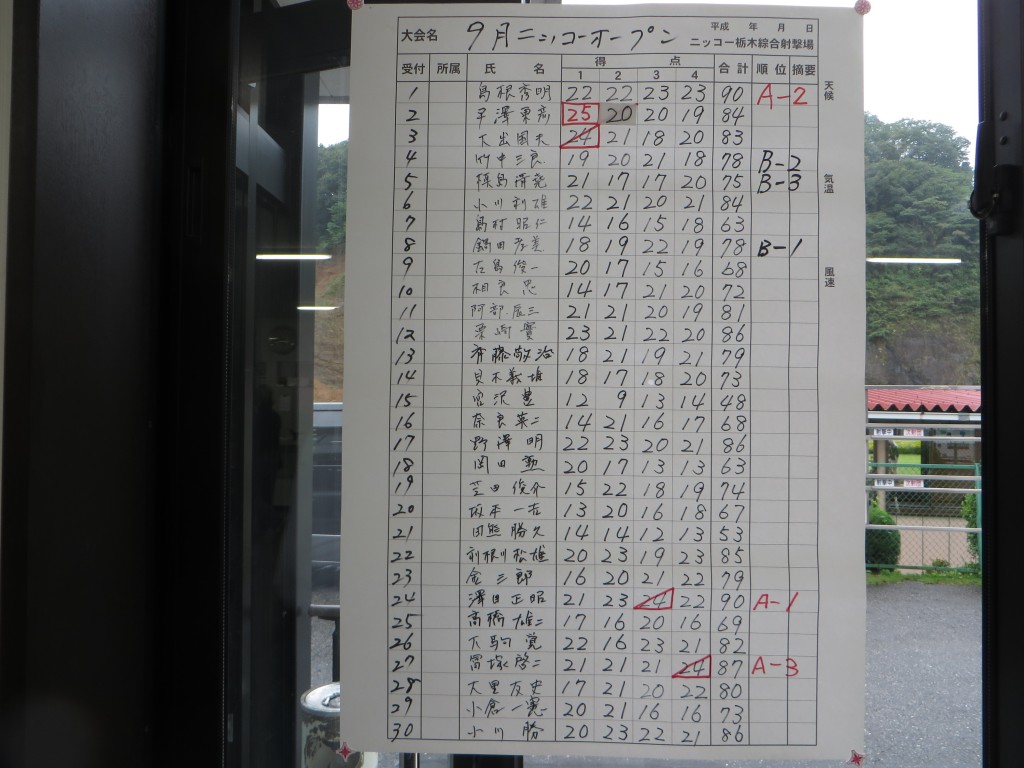 平成 年 月 日
大会名 9月ニッコーオープン ニッコー栃木綜合射撃場
受付 所属 氏名 得点 合計 順位 摘要
1 2 3 4
1 島根秀明 22 22 23 23 90 A-2
2 平澤東彦 25 20 20 19 84
3 大出國夫 24 21 18 20 83
4 竹中三良 19 20 21 18 78 B-2
5 21 17 17 20 75 B-3
6 小川利雄 22 21 20 21 84
7 島村昭仁 14 16 15 18 63
8 鍋田孝美 18 19 22 19 78 B-1
9 古島俊一 20 17 15 16 68
10 相良忠 14 17 21 20 72
11 阿部辰三 21 21 20 19 81
12 栗嶋實 23 21 22 20 86
13 斉藤敬治 18 21 19 21 79
14 貝木義雄 18 17 18 20 73
15 宮沢豊 12 9 13 14 48
16 奈良英二 14 21 16 17 68
17 野澤明 22 23 20 21 86
18 岡田勲 20 17 13 13 63
19 俊介 15 22 18 19 74
20 13 20 16 18 67
21 田熊勝久 14 14 12 13 53
22 利根川松雄 20 23 19 23 85
23 金三郎 16 20 21 22 79
24 澤田正昭 21 23 24 22 90 A-1
25 高橋雄二 17 16 20 16 69
26 大駒寛 22 16 23 21 82
27 冨塚啓二 21 21 21 24 87 A-3
28 大里友史 17 21 20 22 80
29 小倉一寛 20 21 16 16 73
30 小川勝 20 23 22 21 86
天候
気温
風速